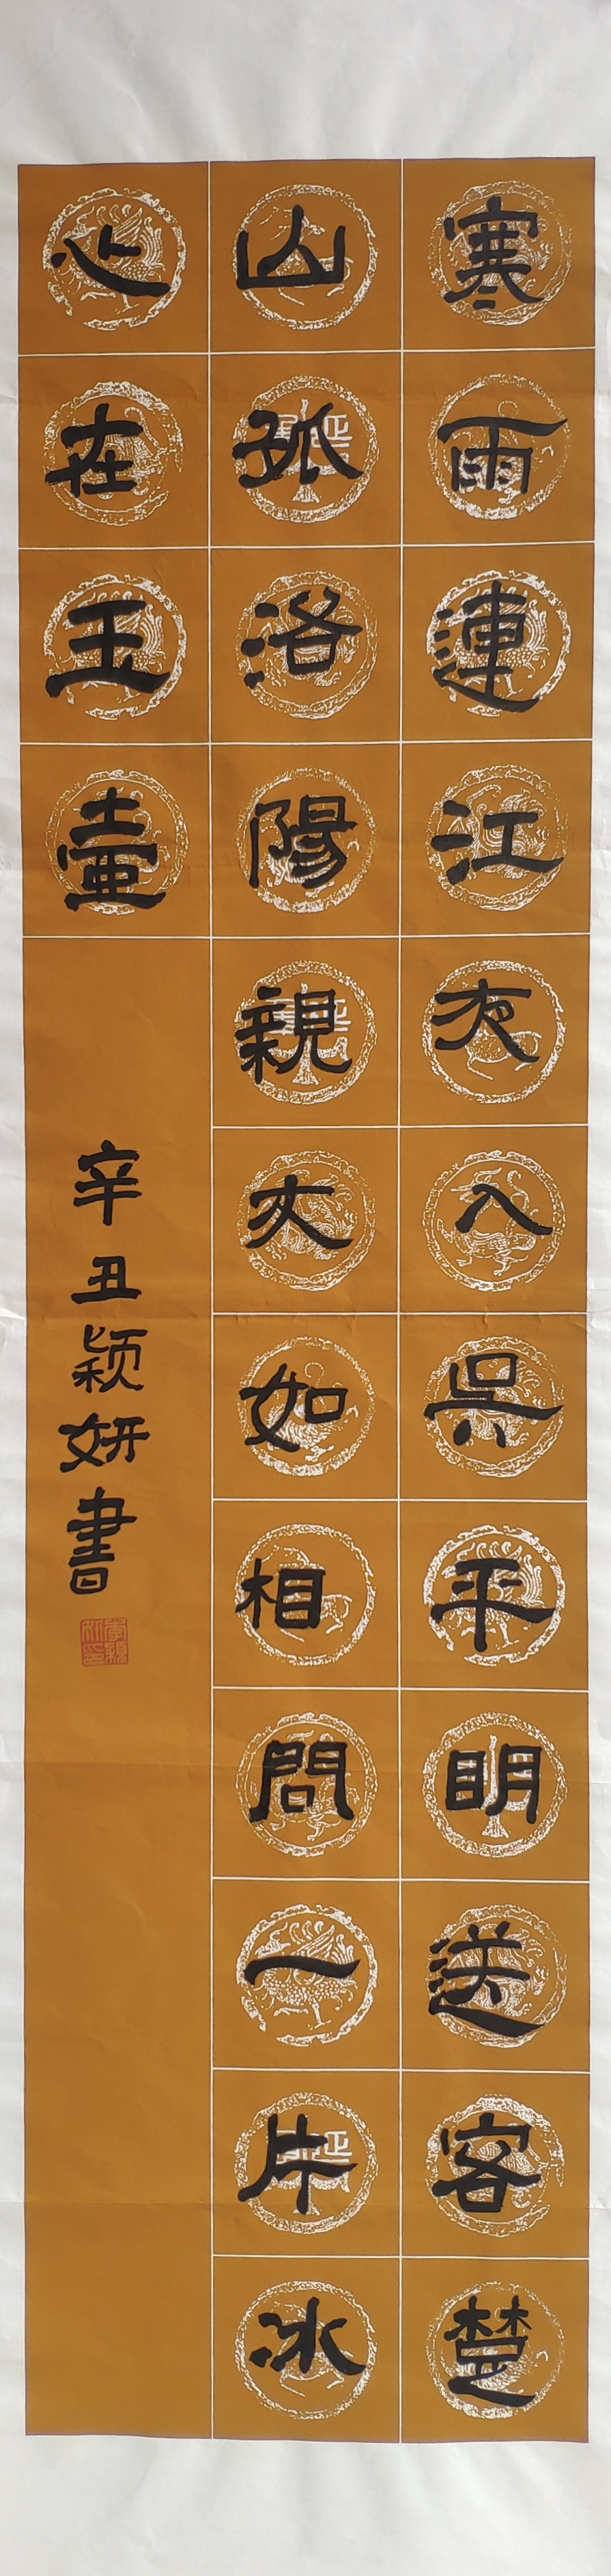 寒雨連江夜入吳平明送客楚
山孤洛陽親友如相問一片冰
心在玉壺
辛丑颖妍書